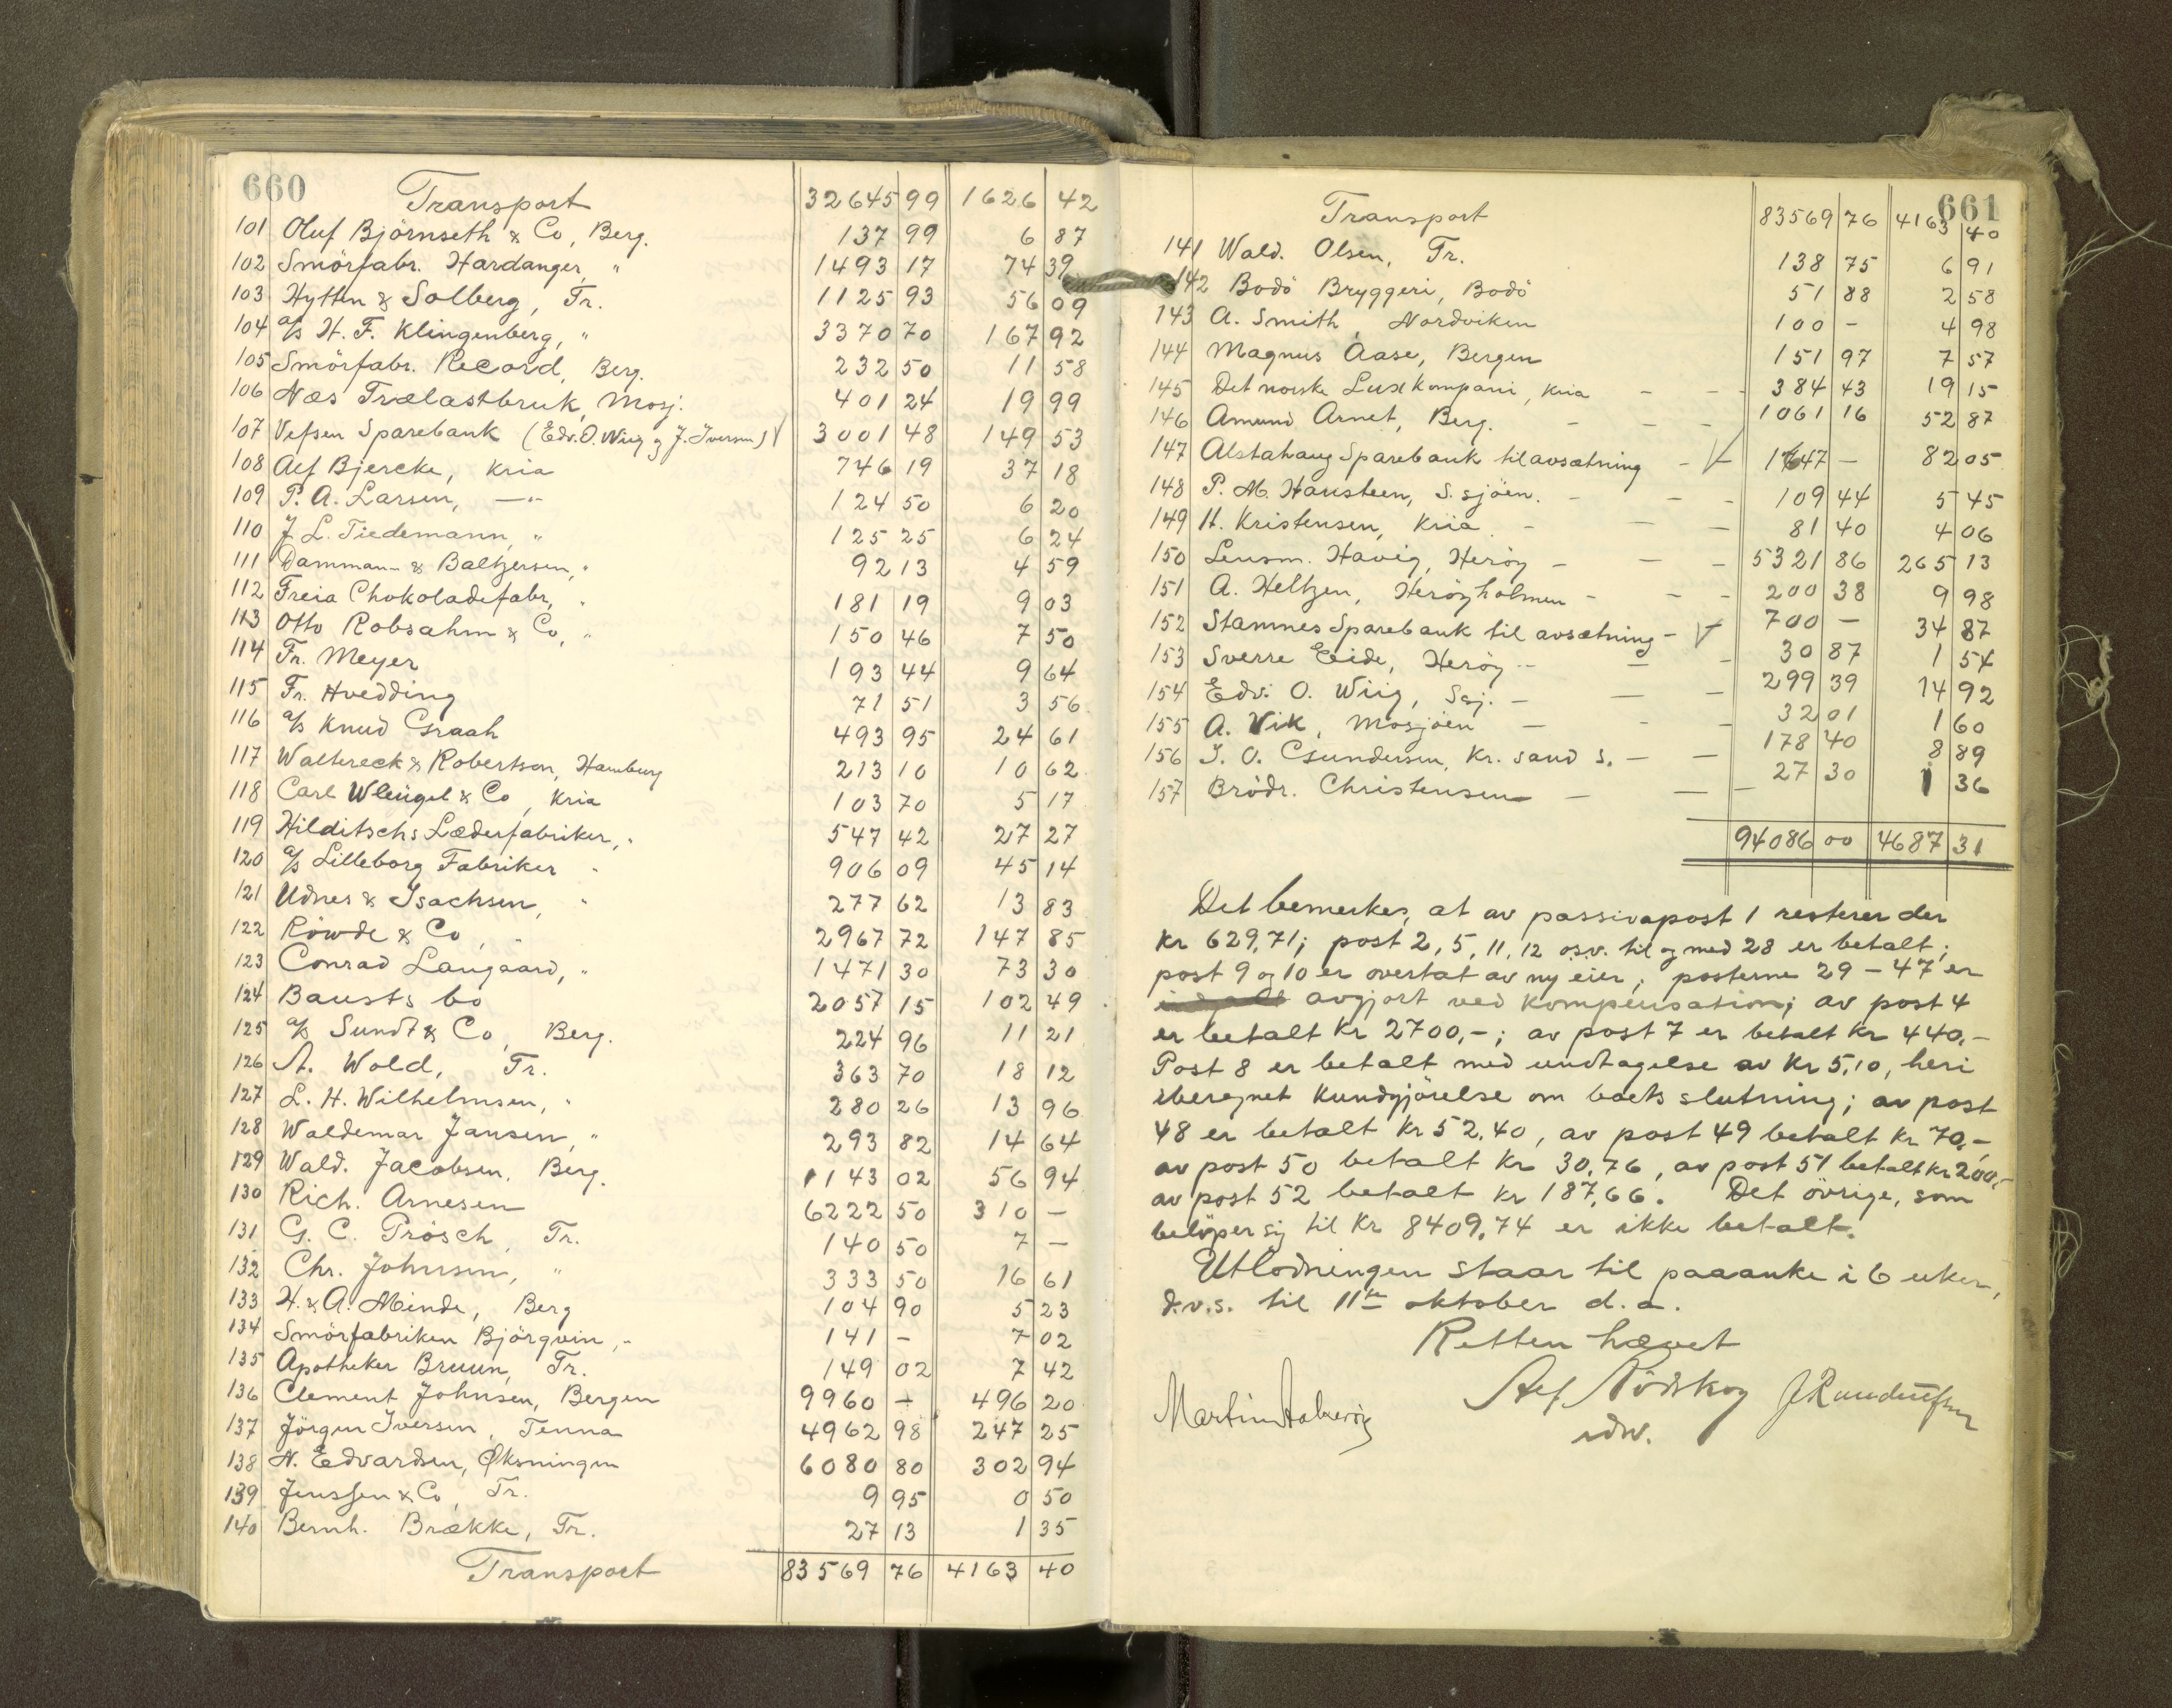 660
Transport 32645 99 1626 42
101 Oluf Björnseth & Co, Berg. 137 99 6 87
102 Smörfabr. Hardanger, " 1493 17 74 39
103 Hytten & Solberg, Tr. 1125 93 56 09
104 a/s H. F. Klingenberg, " 3370 70 167 92
105 Smörfabr. Record, Berg. 232 50 11 58
106 Næs Trælastbruk, Mosj. 401 24 19 99
107 Vefsen Sparebank (Edv. O. Wiig og J. Iversen) V 3001 48 149 53
108 Alf Bjercke, Kria 746 19 37 18
109 P. A. Larsen, —"— 124 50 6 20
110 J. L. Tiedemann, " 125 25 6 24
111 Damman & Baltzersen, " 92 13 4 59
112 Freia Chokoladefabr., " 181 19 9 03
113 Otto Robsahm & Co, " 150 46 7 50
114 Fr. Meyer 193 44 9 64
115 Fr. Hvedding 71 51 3 56
116 a/s Knud Graah 493 95 24 61
117 Waltereck & Robertson, Hamburg 213 10 10 62
118 Carl Wleügel & Co, Kria 103 70 5 17
119 Hilditschs Læderfabriker, " 547 42 27 27
120 a/s Lilleborg Fabriker " 906 09 45 14
121 Udnes & Isachsen, " 277 62 13 83
122 Röwde & Co, " 2967 72 147 85
123 Conrad Langaard, " 1471 30 73 30
124 Bausts bo 2057 15 102 49
125 a/s Sundt & Co, Berg. 224 96 11 21
126 A. Wold, Tr. 363 70 18 12
127 L. H. Wilhelmsen, " 280 26 13 96
128 Waldemar Jansen, " 293 82 14 64
129 Wald. Jacobsen, Berg. 1143 02 56 94
130 Rich. Arnesen 6222 50 310 —
131 G. C. Prösch, Tr. 140 50 7 —
132 Chr. Johnsen, " 333 50 16 61
133 H. & A. Minde, Berg 104 90 5 23
134 Smörfabriken Björgvin, " 141 - 7 02
135 Apotheker Bruun, Tr. 149 02 7 42
136 Clement Johnsen, Bergen 9960 - 496 20
137 Jörgen Iversen, Tenna 4962 98 247 25
138 N. Edvardsen, Øksningen 6080 80 302 94
139 Jenssen & Co, Tr. 9 95 0 50
140 Bernh. Brække, Tr. 27 13 1 35
Transport 83569 76 4163 40
661
Transport 83569 76 4163 40
141 Wald. Olsen, Tr. 138 75 6 91
142 Bodö Bryggeri, Bodö 51 88 2 58
143 A. Smith, Nordviken 100 - 4 98
144 Magnus Aase, Bergen 151 97 7 57
145 Det norske Luxkompani, Kria - - - 384 43 19 15
146 Amund Arnet, Berg. - - - 1061 16 52 87
147 Alstahaug Sparebank til avsætning - V 1647 — 82 05
148 P. M. Hansteen, S. sjöen. - - - 109 44 5 45
149 H. Kristensen, Kria - - - 81 40 4 06
150 Lensm. Havig, Heröy - - - 5321 86 265 13
151 A. Heltzen, Heröyholmen - - - 200 38 9 98
152 Stamnes Sparebank til avsætning - V 700 — 34 87
153 Sverre Eide, Heröy - - - 30 87 1 54
154 Edv. O. Wiig, Ssj. - - - 299 39 14 92
155 A. Vik, Mosjöen - - - 32 01 1 60
156 J. O. Gundersen, Kr. sand S. - - 178 40 8 89
157 Brödr. Christensen - - - 27 30 1 36
94086 00 4687 31
Det bemerkes, at av passivapost 1 resterer der
kr 629,71; post 2, 5, 11, 12 o.s.v. til og med 28 er betalt;
post 9 og 10 er overtat av ny eier; posterne 29 - 47 er
avgjort ved kompensation; av post 4
er betalt kr 2700,-; av post 7 er betalt kr 440,-
Post 8 er betalt med undtagelse av kr 5,10, heri
iberegnet kundgjörelse om boets slutning; av post
48 er betalt kr 52,40, av post 49 betalt kr 70,-
av post 50 betalt kr 30,76, av post 51 betalt kr 200,-
av post 52 betalt kr 187,66. Det övrige, som
belöper sig til kr 8409,74 er ikke betalt.
Utlodningen staar til paaanke i 6 uker,
d.v.s. til 11te oktober d.a.
Retten hævet
Alf Nödskog